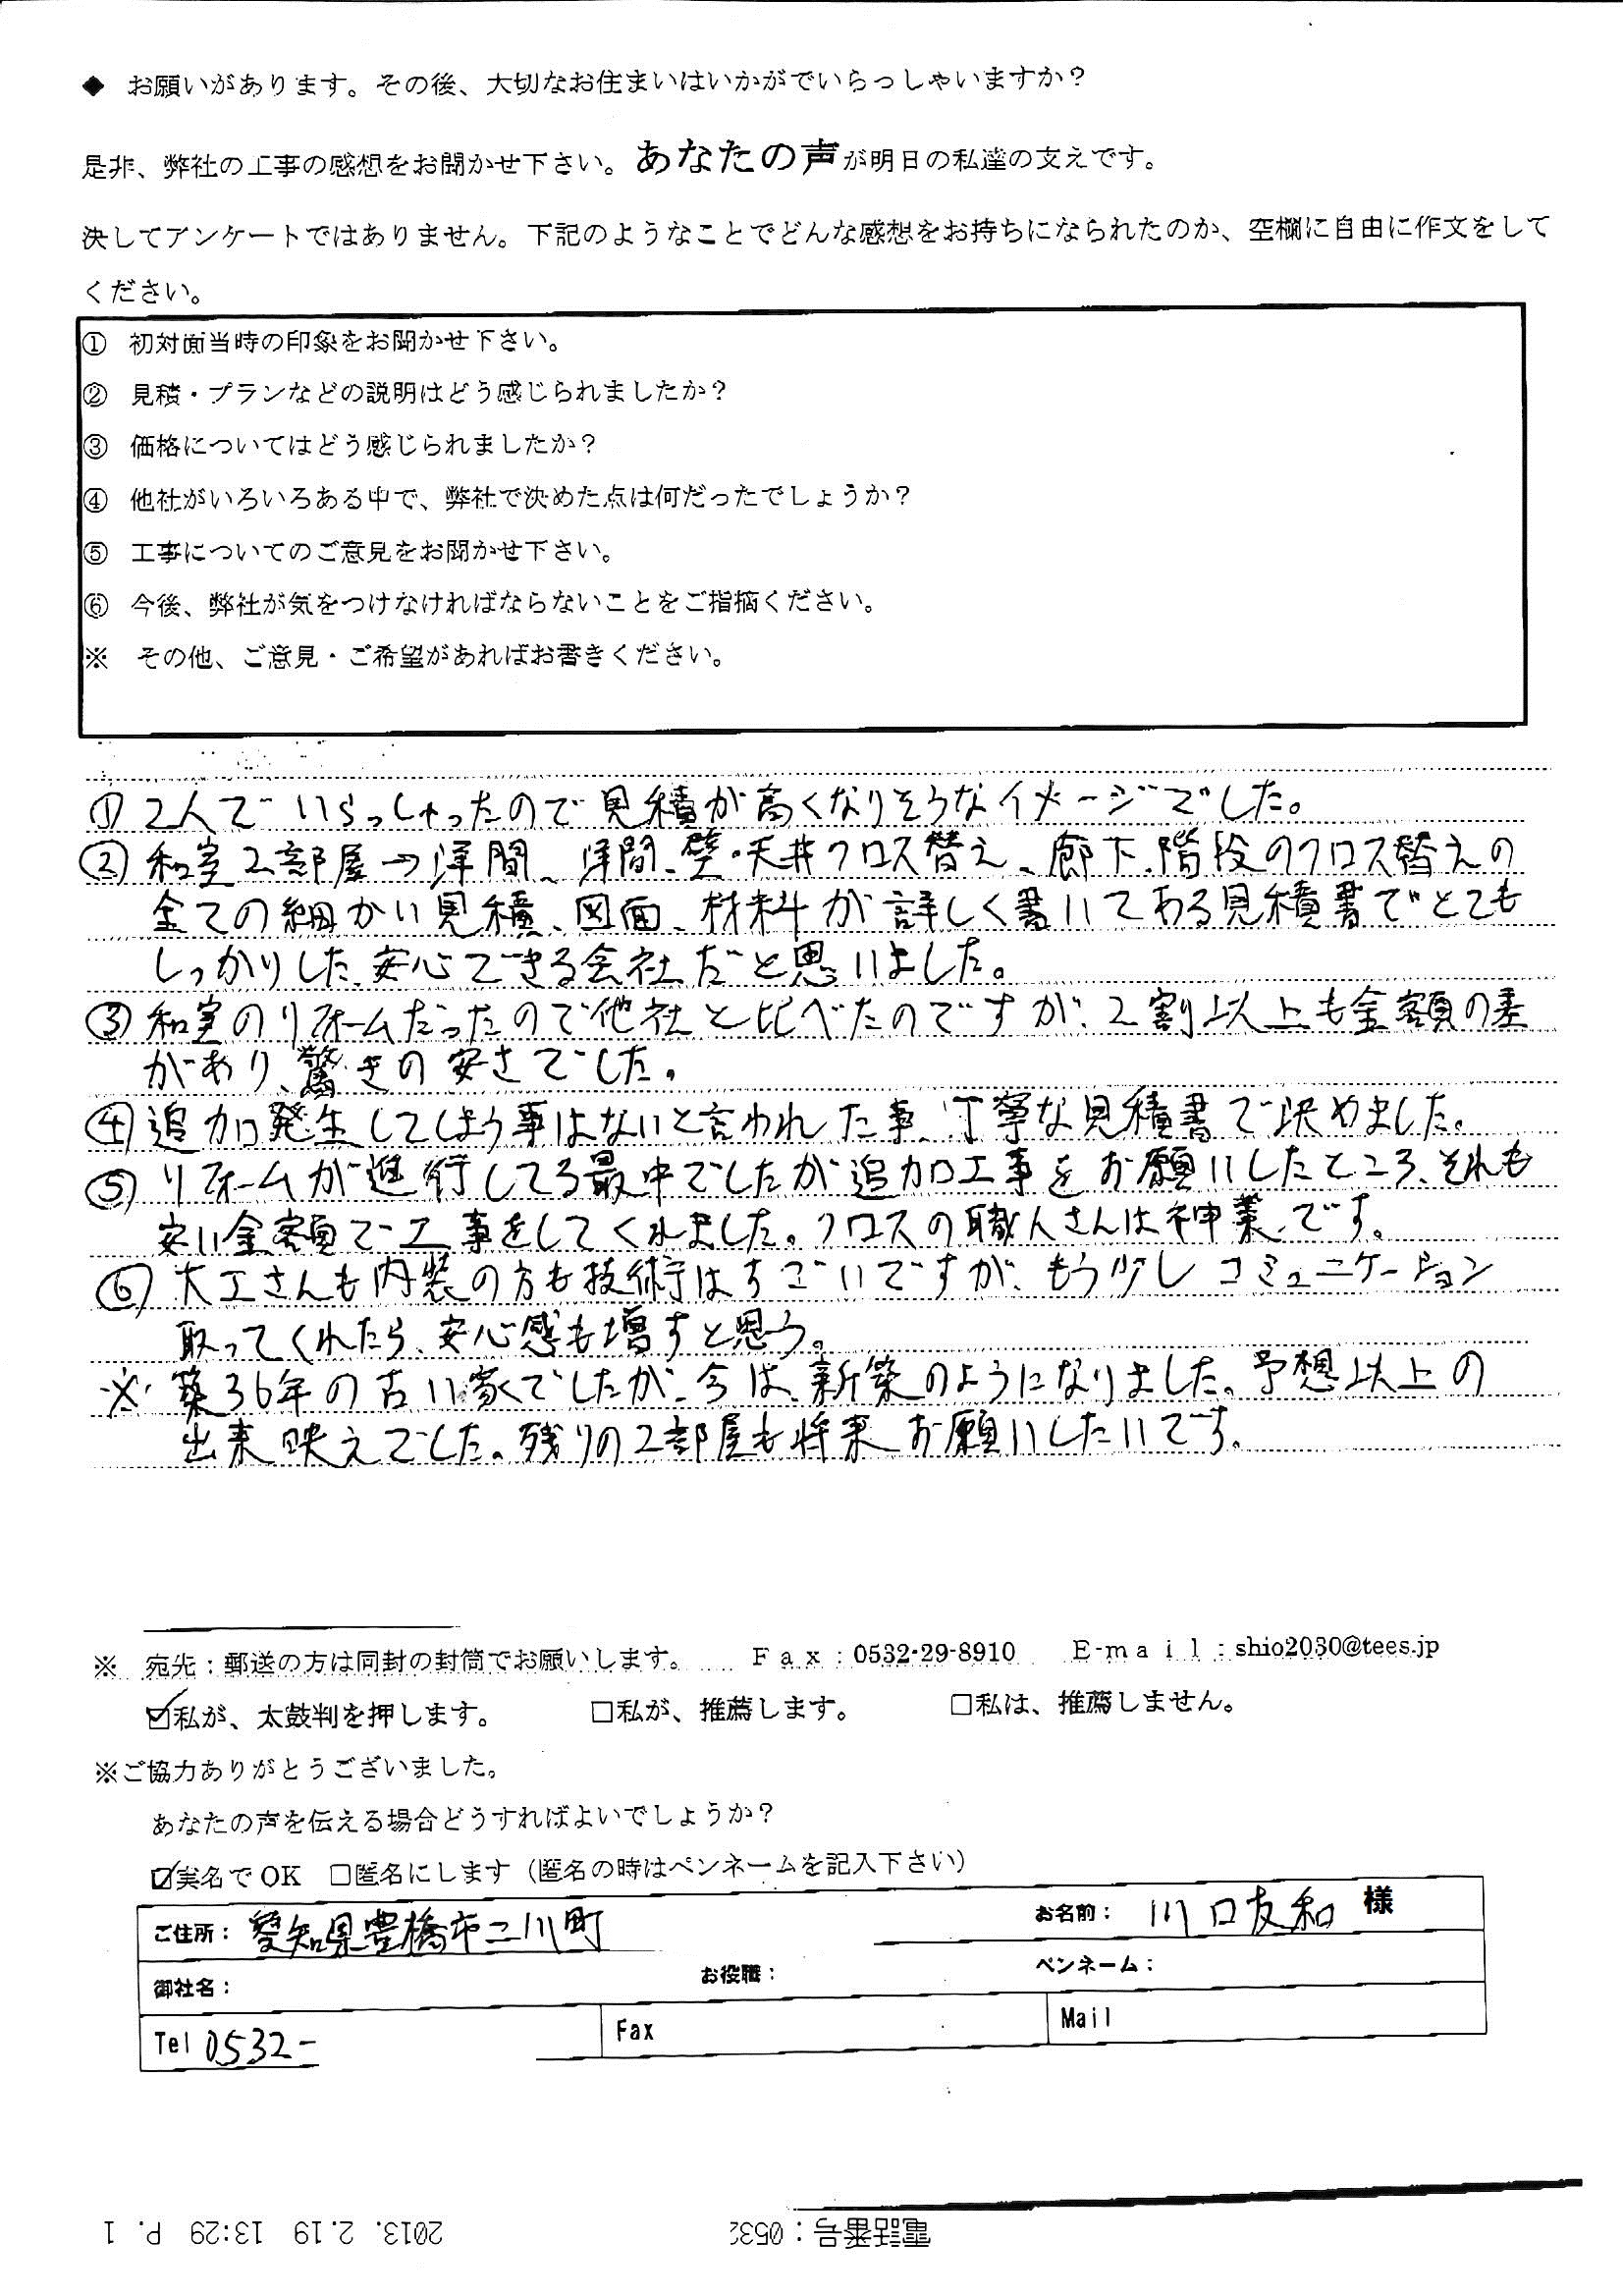 ◆ お願いがあります。その後、大切なお住まいはいかがでいらっしゃいますか？
是非、弊社の工事の感想をお聞かせ下さい。あなたの声が明日の私達の支えです。
決してアンケートではありません。下記のようなことでどんな感想をお持ちになられたのか、空欄に自由に作文をして
ください。
① 初対面当時の印象をお聞かせ下さい。
② 見積・プランなどの説明はどう感じられましたか？
③ 価格についてはどう感じられましたか？
④ 他社がいろいろある中で、弊社で決めた点は何だったでしょうか？
⑤ 工事についてのご意見をお聞かせ下さい。
⑥ 今後、弊社が気をつけなければならないことをご指摘ください。
※ その他、ご意見・ご希望があればお書きください。
① 2人でいらっしゃったので見積が高くなりそうなイメージでした。
② 和室2部屋→洋間、洋間、壁・天井クロス替え、廊下、階段のクロス替えの
全ての細かい見積、図面、材料が詳しく書いてある見積書でとても
しっかりした、安心できる会社だと思いました。
③ 和室のリフォームだったので他社と比べたのですが、2割以上も金額の差
があり、驚きの安さでした。
④ 追加発生してしまう事はないと言われた事、丁寧な見積書で決めました。
⑤ リフォームが進行してる最中でしたが追加工事をお願いしたところ、それも
安い金額で工事をしてくれました。クロスの職人さんは神業です。
⑥ 大工さんも内装の方も技術はすごいですが、もう少しコミュニケーション
取ってくれたら、安心感も増すと思う。
※ 築36年の古い家でしたが、今は、新築のようになりました。予想以上の
出来映えでした。残りの2部屋も将来お願いしたいです。
※ 宛先：郵送の方は同封の封筒でお願いします。 Ｆａｘ：0532-29-8910 Ｅ-ｍａｉｌ：shio2030@tees.jp
☑私が、太鼓判を押します。 □私が、推薦します。 □私は、推薦しません。
※ご協力ありがとうございました。
あなたの声を伝える場合どうすればよいでしょうか？
☑実名でOK □匿名にします（匿名の時はペンネームを記入下さい）
ご住所： 愛知県豊橋市二川町 お名前： 川口友和 様
御社名： お役職： ペンネーム：
Tel 0532- Fax Mail
2013. 2.19 13:29 P. 1 電話番号：0532